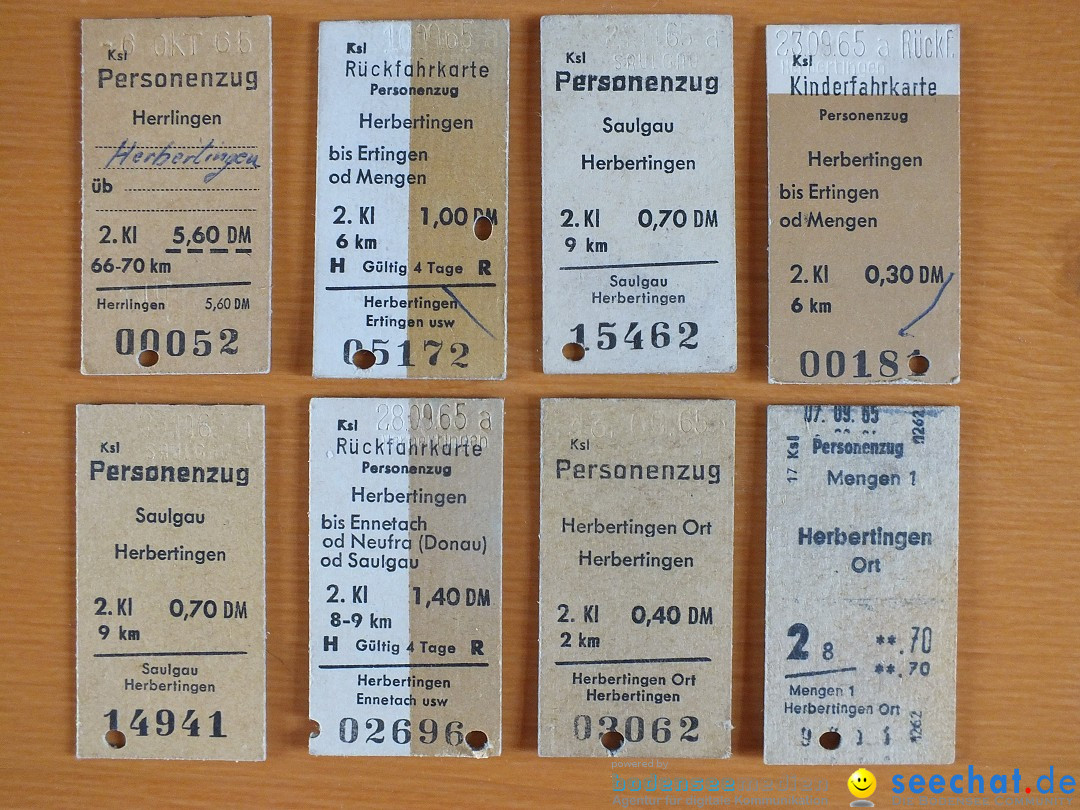 6 OKT 65
Ksl
Personenzug
Herrlingen
Herbertingen
üb
2. Kl 5,60 DM
66-70 km
Herrlingen 5,60 DM
00052
Ksl
Rückfahrkarte
Personenzug
Herbertingen
bis Ertingen
od Mengen
2. Kl 1,00 DM
6 km
H Gültig 4 Tage R
Herbertingen
Ertingen usw
05172
Ksl
Personenzug
Saulgau
Herbertingen
2. Kl 0,70 DM
9 km
Saulgau
Herbertingen
15462
23.09.65 a Rückf.
Ksl
Kinderfahrkarte
Personenzug
Herbertingen
bis Ertingen
od Mengen
2. Kl 0,30 DM
6 km
00181
Ksl
Personenzug
Saulgau
Herbertingen
2. Kl 0,70 DM
9 km
Saulgau
Herbertingen
14941
28.09.65 a
Ksl
Rückfahrkarte
Personenzug
Herbertingen
bis Ennetach
od Neufra (Donau)
od Saulgau
2. Kl 1,40 DM
8-9 km
H Gültig 4 Tage R
Herbertingen
Ennetach usw
02696
Ksl
Personenzug
Herbertingen Ort
Herbertingen
2. Kl 0,40 DM
2 km
Herbertingen Ort
Herbertingen
03062
07.09.65
17 Ksl
1262
Personenzug
Mengen 1
Herbertingen
Ort
2 8 **.70
**.70
Mengen 1
Herbertingen Ort
1262
powered by
bodenseemedien
Agentur für digitale Kommunikation
seechat.de